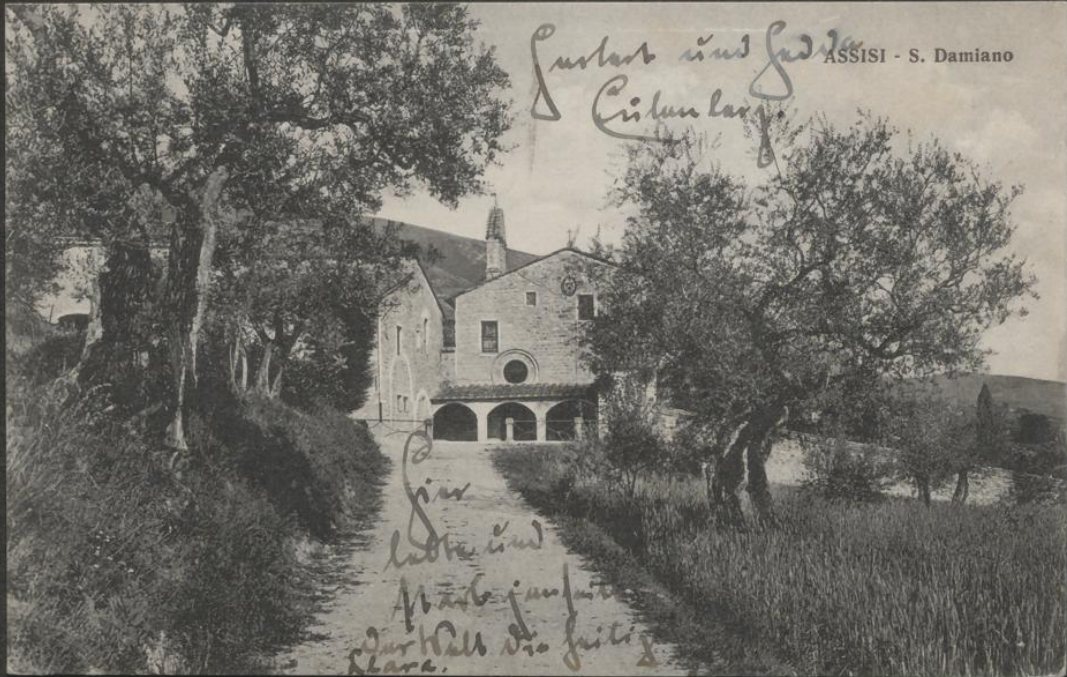 ASSISI - S. Damiano
Herbert und Hedda
Eulenberg.
Hier
lebte und
starb jenseits
der Welt die heilig
Clara.